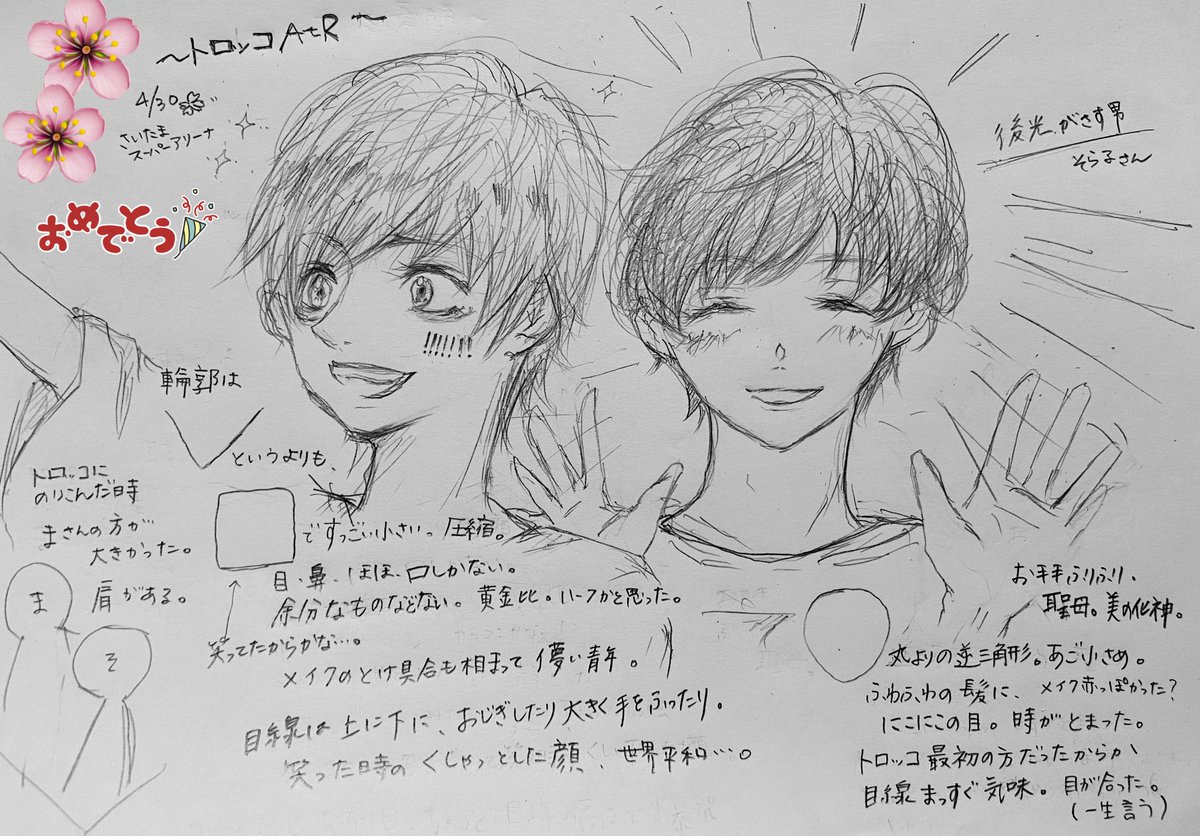 ～トロッコ AtR～
4/30
さいたま
スーパーアリーナ
おめでとう
後光がさす男
そら子さん
輪郭は
というよりも、
トロッコに
のりこんだ時
まさんの方が
大きかった。
肩がある。
ま
そ
ですっごい小さいっ。圧縮。
目、鼻、ほほ、口しかない。
余分なものなどない。黄金比。ハーフかと思った。
笑ってたからかな…。
メイクのとけ具合も相まって儚い青年。
目線は上に下に、おじぎしたり大きく手をふったり。
笑った時のくしゃっとした顔、世界平和…。
お手手ふりふり、
聖母。美の化神。
丸よりの逆三角形。あご小さめ。
ふわふわの髪に、メイク赤っぽかった？
にこにこの目。時がとまった。
トロッコ最初の方だったからか
目線まっすぐ気味。目が合った。
(一生言う)